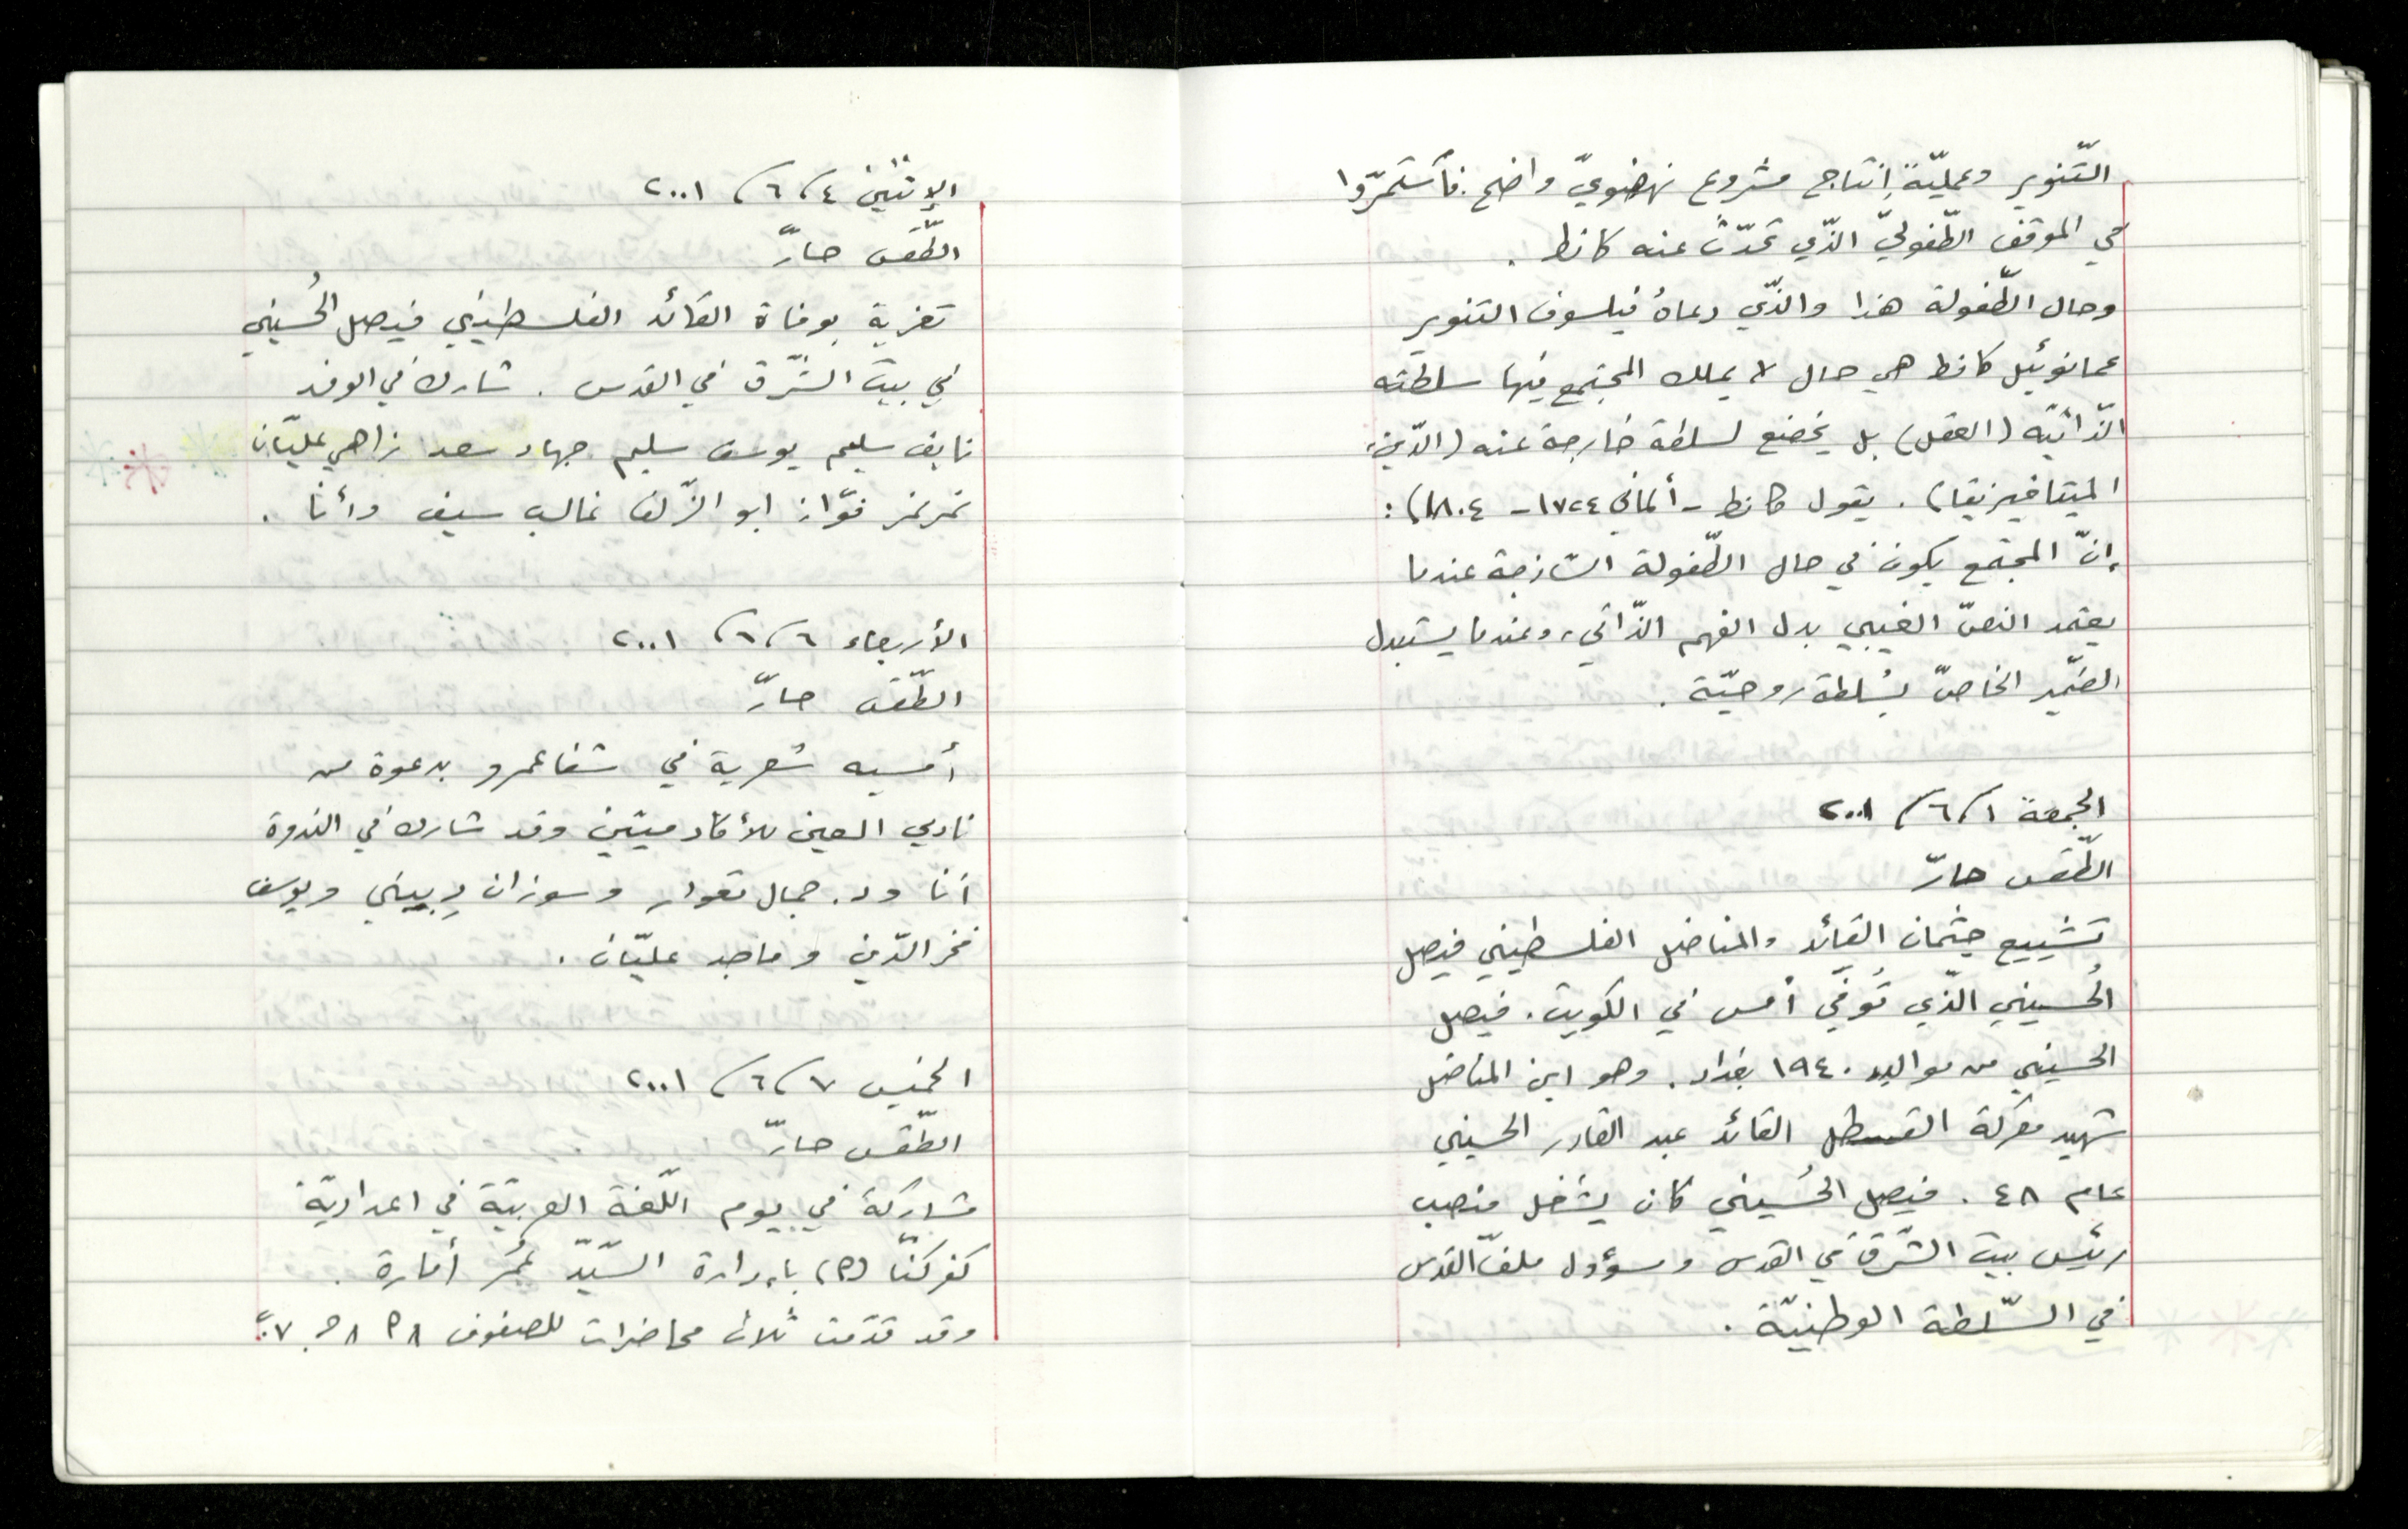 التّنوير وعمليّة إنتاج مشروع نهضويّ واضح. فأستمرّوا
في الموقف الطّفوليّ الذّي تحدّث عنه كانط .
وحال الطّفولة هذا والذّي دعاهُ فيلسوف التنوير
عمانوئيل كانط هي حال لا يملك المجتمع فيها سلطته
الذّاتيّه (العقل) بل يخضع لسلطة خارجة عنه (الدّين،
الميتافيزيقا) . يقول كانط - ألماني ١٧٢٤ - ١٨٠٤) :
إنّ المجتمع يكون في حال الطّفولة السّاذجة عندما
يعتمد النصّ الغيبي بدل الفهم الذّاتي، وعندما يستبدل
الضّمير الخاصّ بسُلطة روحيّة .
الجمعة ١/ ٦/ ٢٠٠١
الطّقس حارّ
تشييع جثمان القائد والمناضل الفلسطيني فيصل
الحُسيني الذّي تُوفّي أمس في الكويت . فيصل
الحسيني من مواليد ١٩٤٠ بغداد . وهو ابن المناضل
شهيد معركة القسطل القائد عبد القادر الحسيني
عام ٤٨ . فيصل الحُسيني كان يشغل منصب
رئيس بيت الشّرق في القدس ومسؤول ملفّ القدس
في السّلطة الوطنيّة .
الإثنين ٤/ ٦/ ٢٠٠١
الطّقس حارّ
تعزية بوفاة القائد الفلسطيني فيصل الحُسيني
في بيت الشّرق في القدس . شارك في الوفد
نايف سليم يوسف سليم جهاد سعد زاهي عليّان
نمر نمر فوّاز ابو الزّلف غالب سيف وأنا .
الأربعاء ٦/ ٦/ ٢٠٠١
الطّقس حارّ
أمسيه شعرية في شفاعمرو بدعوة من
نادي العين للأكادميّين وقد شارك في الندوة
أنا ود. جمال قعوار وسوزان دبيني ويوسف
فخر الدّين وماجد عليّان .
الخميس ٧/ ٦/ ٢٠٠١
الطّقس حارّ
مشاركة في يوم اللّغة العربيّة في اعداديّة
كفركنّا (م) بإدارة السّيّد عُمر أمارة .
وقد قدّمت ثلاث محاضرات للصفوف